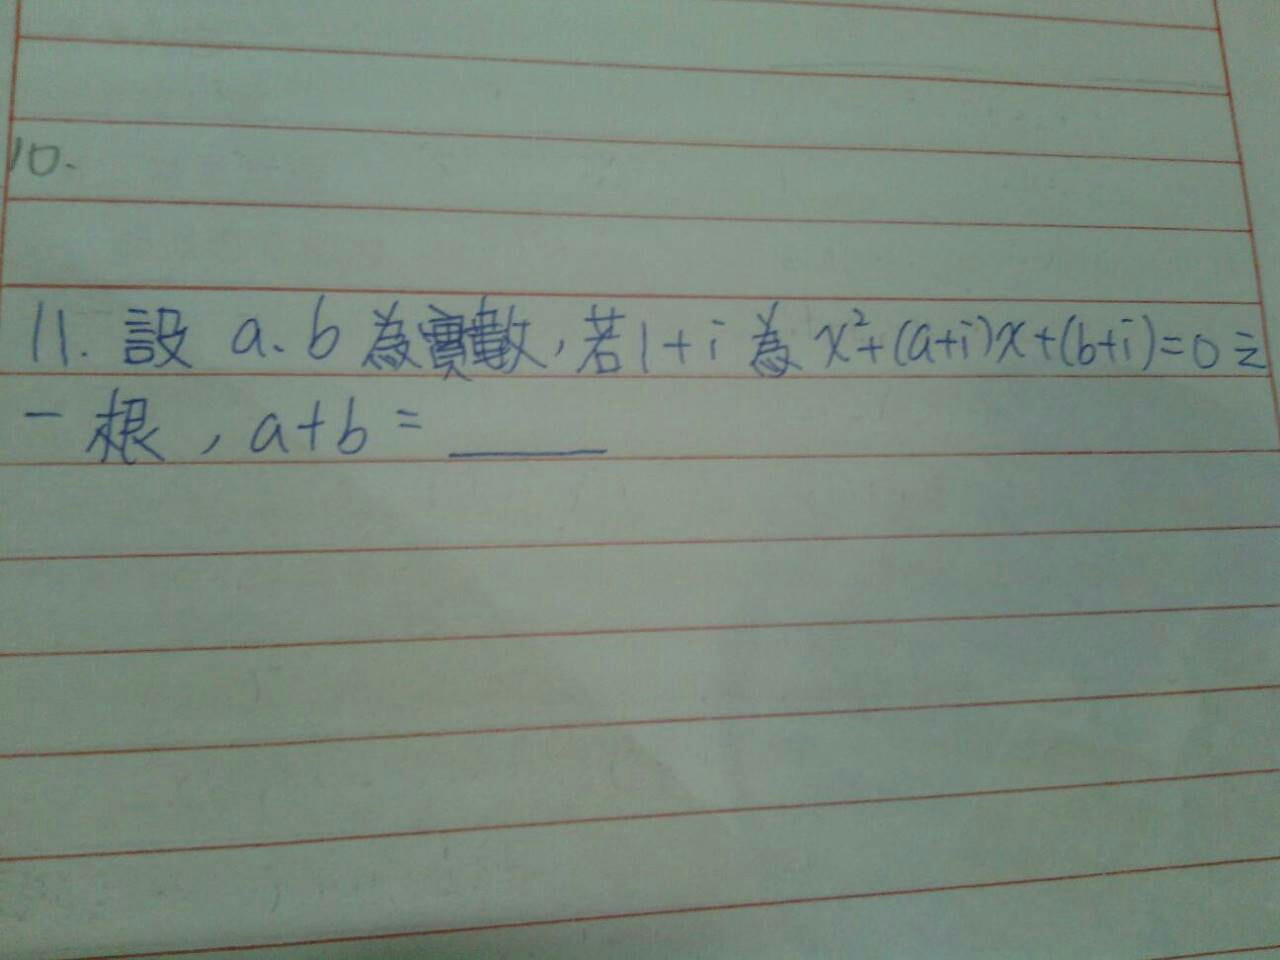 10.
11. 設 a、b 為實數，若1+i 為 x²+(a+i)x+(b+i)=0 之
一根，a+b=____